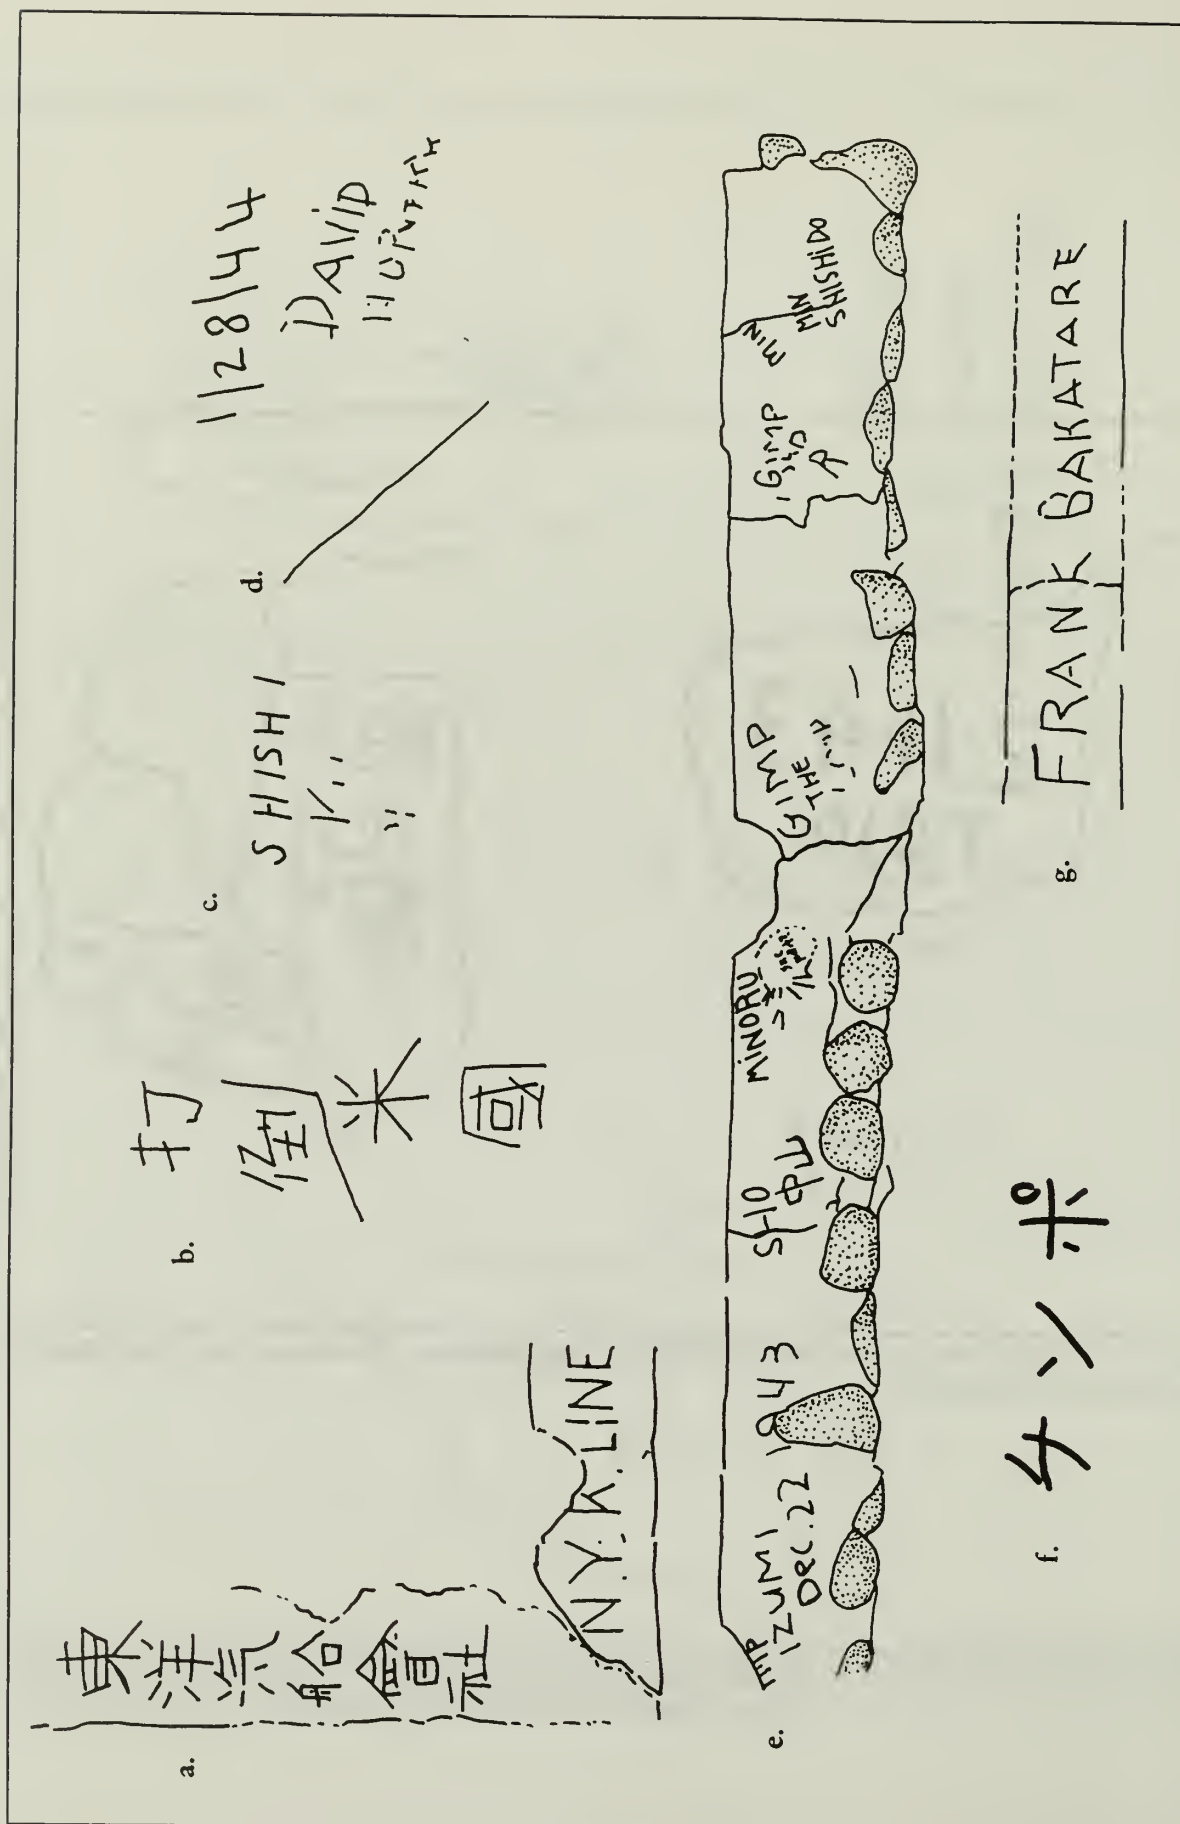 a.
東洋汽船會社
N.Y.K. LINE
b.
打
倒
米
國
c.
SHISHI
d.
1/28/44
DAVID
e.
IZUMI
DEC. 22
1943
SHIO
MINORU
GIMP
THE
GIMP
MIN
MIN
SHISHIDO
f.
チンポ
g.
FRANK BAKATARE